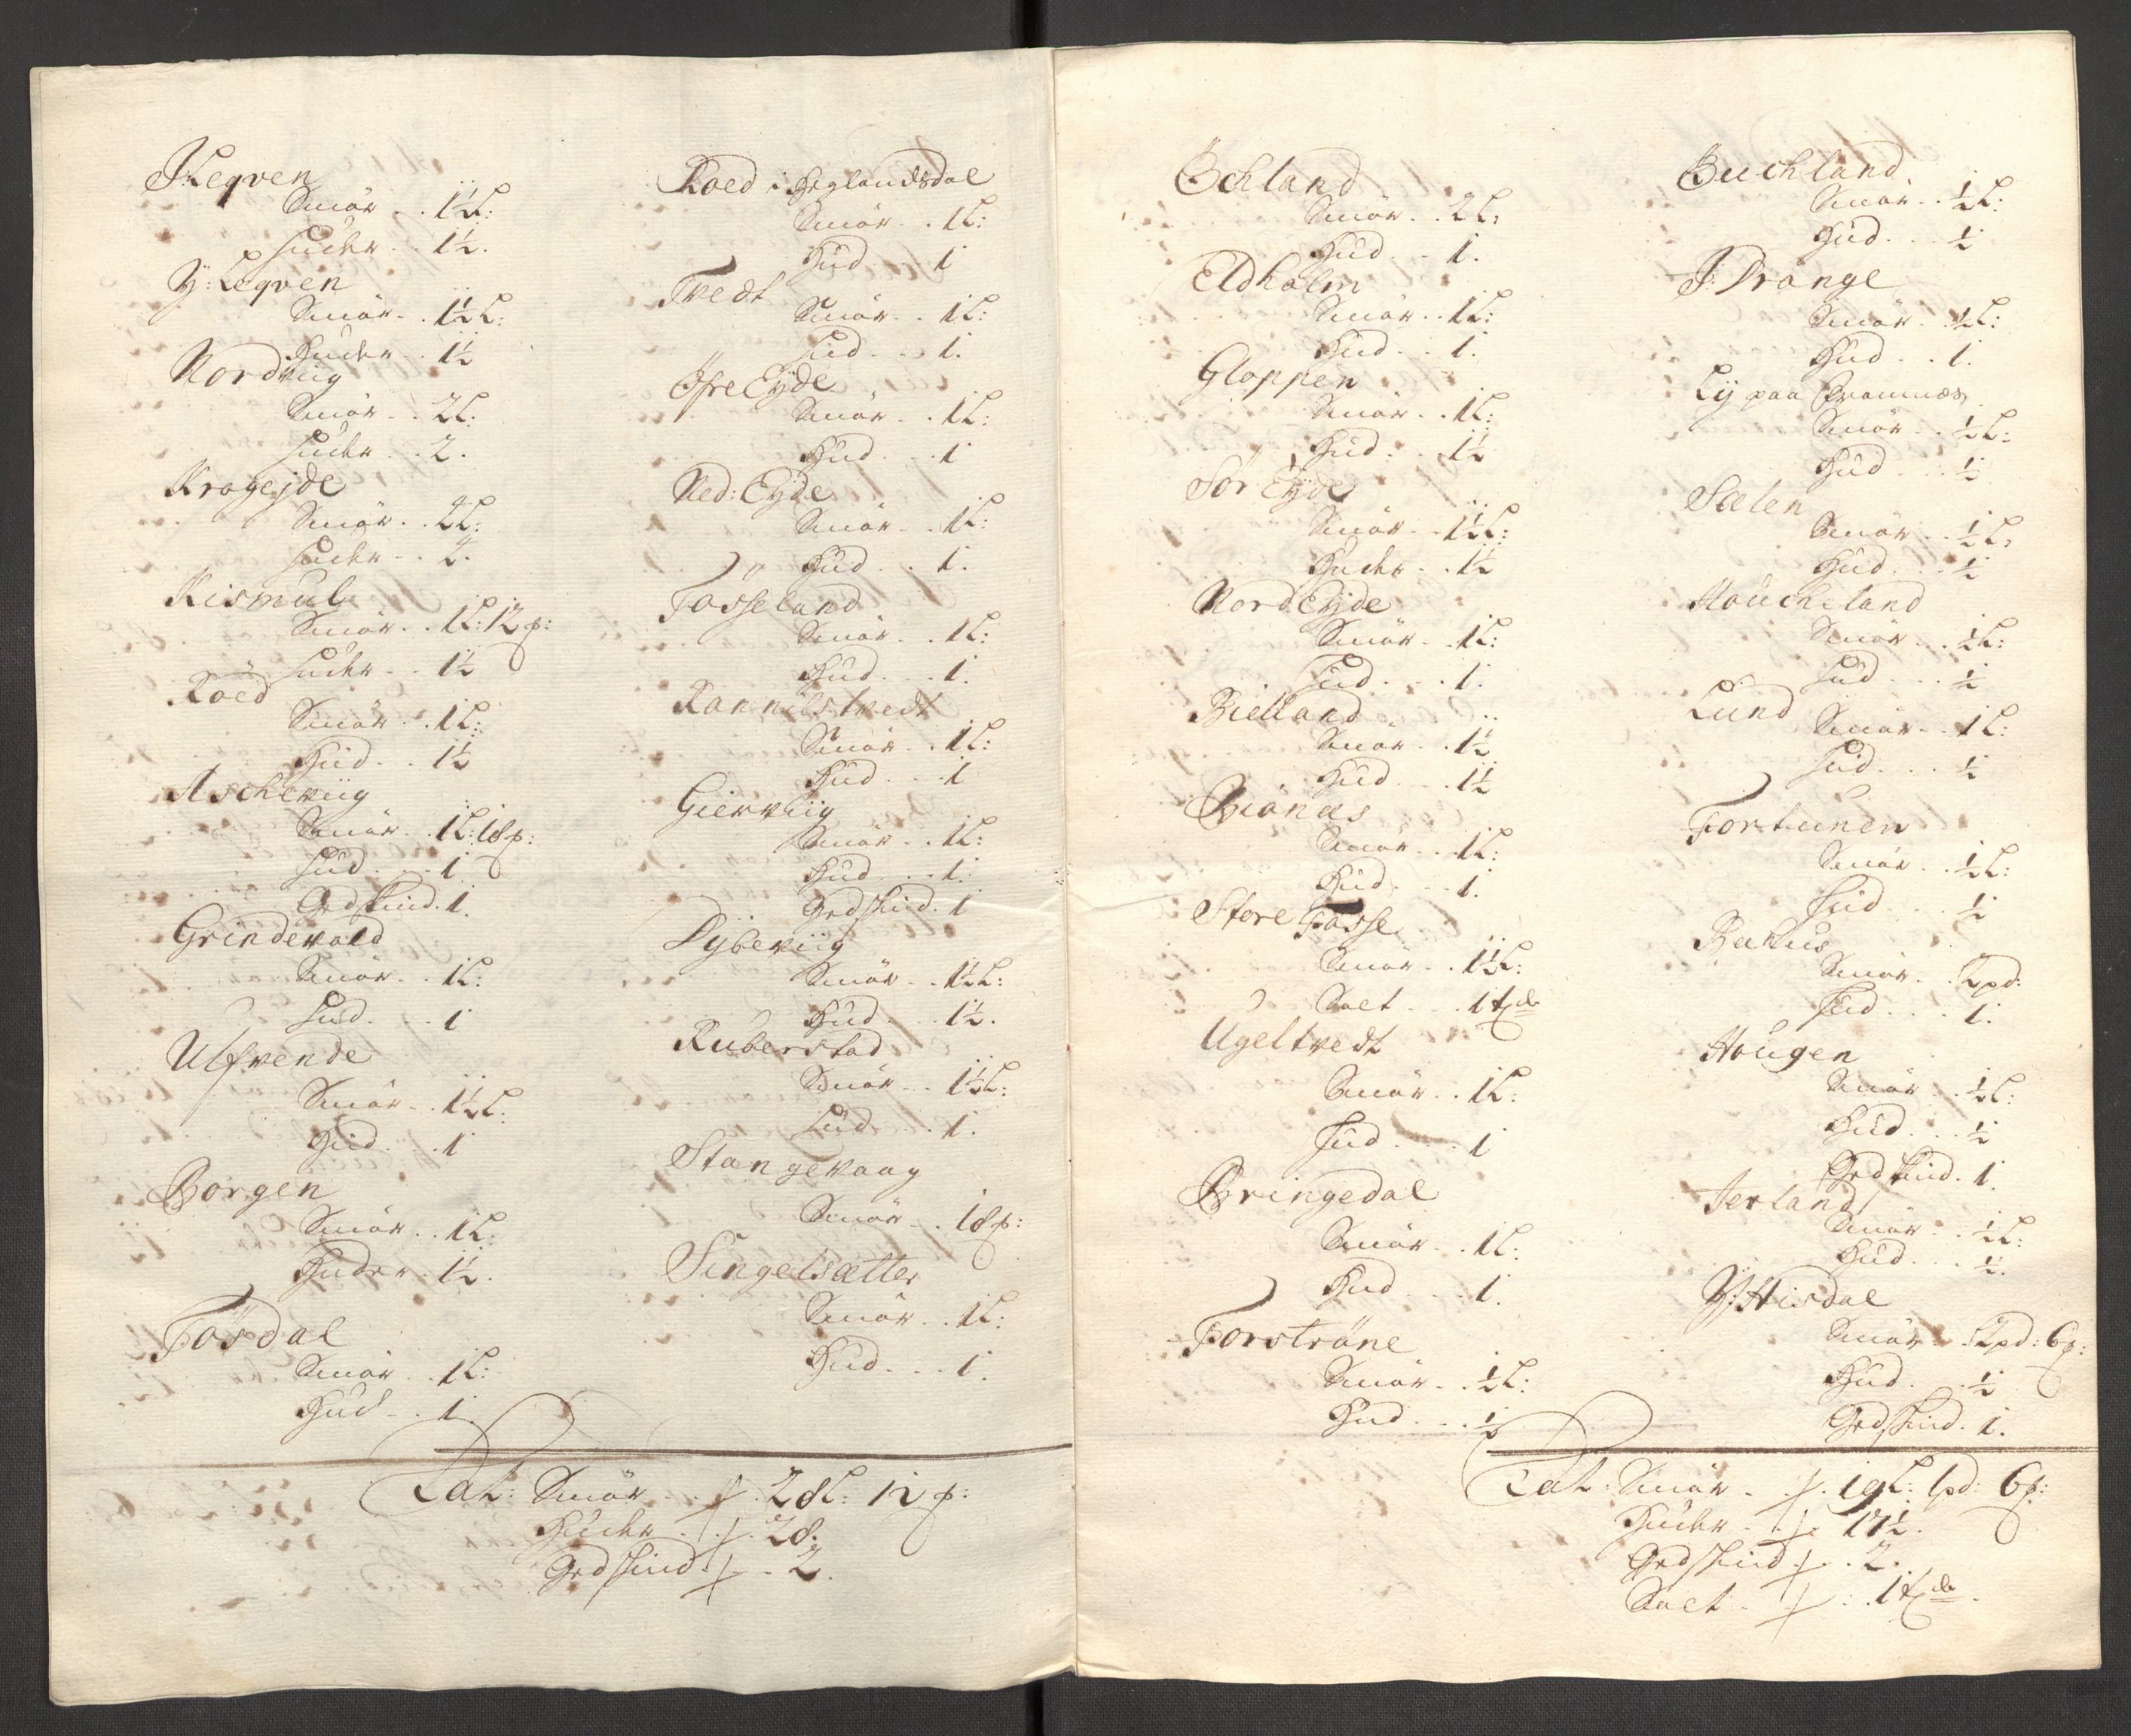 J: Leqven
Smör . . 1½ L:
Huder . . 1½.
Y: Leqven
Smör . . 1½ L:
Huder . . 1½
Nordviig
Smör . . 2 L:
Huder . . 2.
Kragejde
Smör . . 2 L:
Huder . . 2.
Kismul
Smör . . 1 L: 12 p:
Huder . . 1½
Röed
Smör . . 1 L:
Hud . . 1½
Ascheviig
Smör . . 1 L: 18 p:
Hud . . . 1
Gedskind . 1.
Grindevold
Smör . . 1 L:
Hud . . . 1
Ulfvende
Smör . . 1½ L:
Hud . . . 1
Borgen
Smör . . 1 L:
Huder . 1½.
Fösdal
Smör . . 1 L:
Hud . . 1.
Roed i Heglandsdal
Smör . . 1 L:
Hud . . 1
Tvedt
Smör . . 1 L:
Hud . . . 1.
Öfre Eyde
Smör . . 1 L:
Hud . . . 1
Ned: Eyde
Smör . . 1 L:
Hud . . 1.
Fosseland
Smör . . 1 L:
Hud . . . 1.
Rannestvedt
Smör . . 1 L:
Hud . . . 1
Gierviig
Smör . . 1 L:
Hud . . . 1.
Gedskind . 1
Dybeviig
Smör . . 1½ L:
Hud . . . 1½.
Ruberstad
Smör . . 1½ L:
Hud . . . 1.
Stangevaag
Smör . . 18 p:
Singelsætter
Smör . . 1 L:
Hud . . . 1.
Lat: Smör . . 28 L: 12 p:
Huder . . 28.
Gedskind . . 2.
Öchland
Smör . . 2 L:
Hud . . 1.
Eldholm
Smör . . 1 L:
Hud . . 1.
Gloppen
Smör . . 1 L:
Hud . . 1½
Sör Eyde
Smör . . 1½ L:
Huder . . 1½
Nord Eyde
Smör . . 1 L:
Hud . . . 1.
Bielland
Smör . . 1½
Hud . . . 1½
Biönes
Smör . . 1 L:
Hud . . . 1.
Store Fosse
Smör . . 1½ L:
Salt . . . 1 tde
Ugeltvedt
Smör . . 1 L:
Hud . . . 1
Bringedal
Smör . . 1 L:
Hud . . . 1.
Forströne
Smör . . ½ L:
Hud . . . ½
Buchland
Smör . . ½ L:
Hud . . . ½
J: Drange
Smör . . ½ L:
Hud . . 1.
Ly paa Bramnæs
Smör . . ½ L:
Hud . . . ½
Sælen
Smör . . ½ L:
Hud . . . ½
Houcheland
Smör . . ½ L:
Hud . . . ½
Lund
Smör . . 1 L:
Hud . . . ½
Fortunen
Smör . . ½ L:
Hud . . . ½
Bakus
Smör . . 2 pd:
Hud . . . 1.
Hougen
Smör . . ½ L:
Hud . . . ½
Gedskind . 1.
Jerland
Smör . . ½ L:
Hud . . . ½.
Y: Hisdal
Smör . . 2 pd: 6 p:
Hud . . . ½
Gedskind . 1.
Lat: Smör . . 19 L: 1 pd: 6 p:
Huder . . 17½.
Gedskind . . 2.
Salt . . . 1 tde.